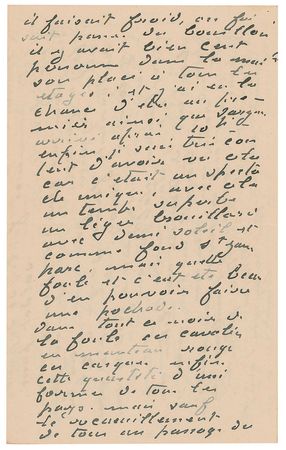 il faisait froid, on fai
sait passer du bouillon
il y avait bien cent
personnes dans la mai
son placés à tous les
étages, et j'ai eu la
chance d'être au pre-
mier ainsi que
arrivés après
enfin je suis très con
tent d'avoir vu cela
car c'était un specta
cle unique, avec cela
un temps superbe
un léger brouillard
avec demi soleil et
comme fond St James
parc, mais quelle
foule et c'eut été beau
d'en pouvoir faire
une pochade.
dans tout ce noir de
la foule ces cavaliers
en manteau rouge
en casques, enfin
cette quantité d'uni
formes de tous les
pays. mais sauf
le recueillement
de tous au passage du